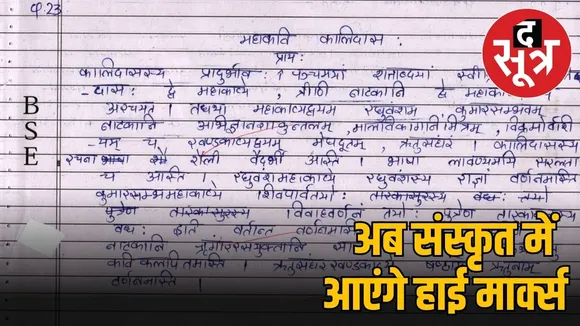 Q.23
महाकवि कालिदास :
द
सूत्र
प्रायः
कालिदासस्य प्रादुर्भाव : पञ्चमयां शताब्दयां स्वी
दासः द्वे महाकाव्य, त्रीणी नाटकानि द्वे
अरचयत् । तद्यथा महाकाव्यद्वयम् रघुवंशम्, कुमारसम्भवम्
नाटकानि अभिज्ञानशाकुन्तलम्, मालविकाग्निमित्रम्, विक्रमोर्वशी
यम् च खण्डकाव्यद्वयम् मेघदूतम्, ऋतुसंहार । कालिदासस्य
रचना शैली वैदर्भी अस्ति । भाषा लावण्यमयि सरला
च अस्ति । रघुवंशमहाकाव्ये रघुवंशस्य राज्ञां वर्णनमस्ति
कुमारसम्भमहाकाव्ये शिवपार्वतयोः तारकासुरस्य वधः तयो
पुत्रेण तारकासुरस्य । विवाहवर्णनं तयोः पुत्रेण
वधः इति
नाटकानि
कवि
वर्णनमस्ति ।
BSE
अब संस्कृत में
आएंगे हाई मार्क्स